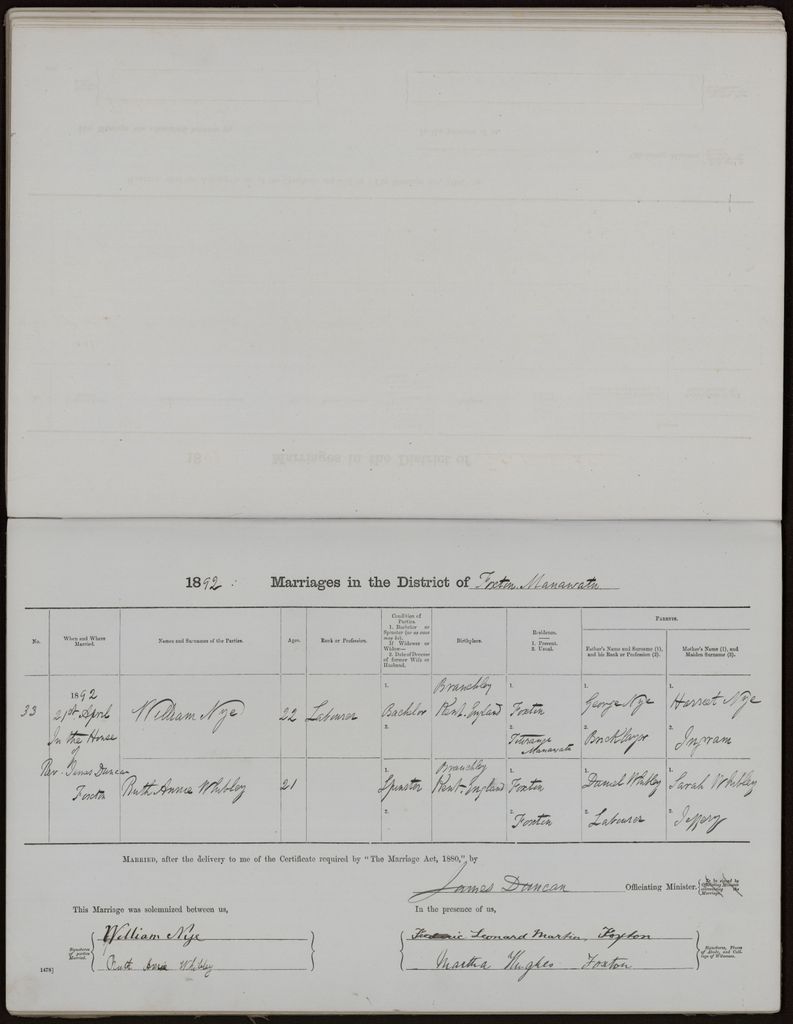 1892 Marriages in the District of Foxton Manawatu
No.
When and Where Married.
Names and Surnames of the Parties.
Ages.
Rank or Profession.
Condition of Parties.
1. Bachelor or Spinster (or as case may be).
If Widower or Widow—
2. Date of Decease of former Wife or Husband.
Birthplace.
Residence.
1. Present.
2. Usual.
Parents.
Father's Name and Surname (1), and his Rank or Profession (2).
Mother's Name (1), and Maiden Surname (2).
33
1892
21st April
In the House
of
Rev. James Duncan
Foxton
William Nye
22
Labourer
1. Bachelor
2.
Branchley
Kent-England
1. Foxton
2. Manawatu
1. George Nye
2. Bricklayer
1. Harriet Nye
2. Ingram
Ruth Annie Whibley
21
1. Spinster
2.
Branchley
Kent-England
1. Foxton
2. Foxton
1. Daniel Whibley
2. Labourer
1. Sarah Whibley
2. Jeffery
Married, after the delivery to me of the Certificate required by "The Marriage Act, 1880," by
James Duncan Officiating Minister.
This Marriage was solemnized between us,
In the presence of us,
Signatures of parties Married.
William Nye
Ruth Annie Whibley
Leonard Martin, Foxton
Martha Hughes Foxton
Signatures, Places of Abode, and Callings of Witnesses.
1478]